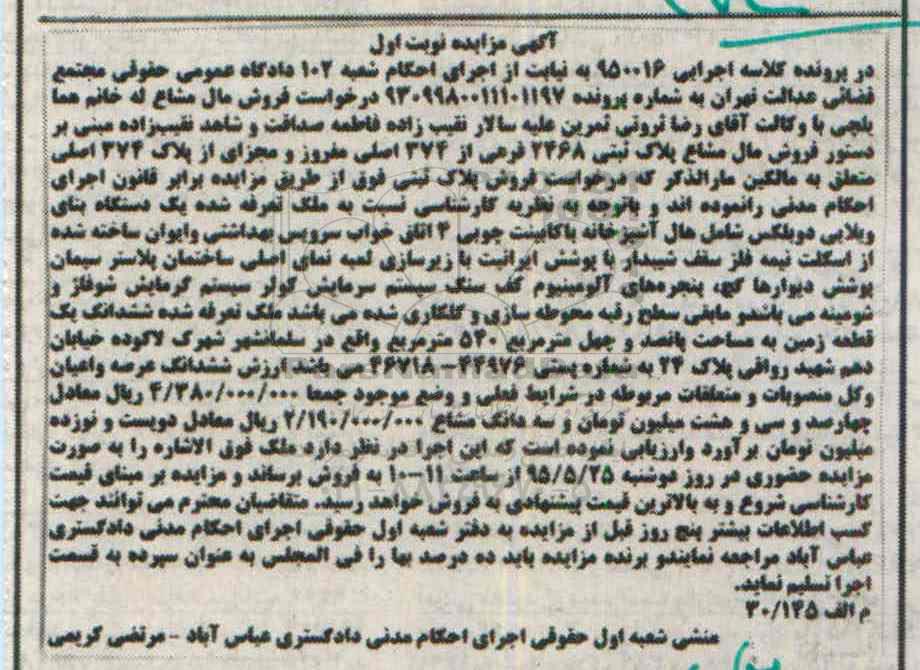 آگهی مزایده نوبت اول
در پرونده کلاسه اجرایی ۹۵۰۰۱۶ به نیابت از اجرای احکام شعبه ۱۰۲ دادگاه عمومی حقوقی مجتمع
قضائی عدالت تهران به شماره پرونده ۹۳۰۹۹۸۰۰۱۱۱۰۱۱۹۷ درخواست فروش مال مشاع له خانم هما
یلچی با وکالت آقای رضا ثروتی ثمرین علیه سالار نقیب زاده فاطمه صداقت و شاهد نقیب‌زاده مبنی بر
دستور فروش مال مشاع پلاک ثبتی ۲۴۶۸ فرعی از ۳۷۴ اصلی مفروز و مجزای از پلاک ۳۷۴ اصلی
متعلق به مالکین مارالذکر که درخواست فروش پلاک ثبتی فوق از طریق مزایده برابر قانون اجرای
احکام مدنی رانموده اند و باتوجه به نظریه کارشناسی نسبت به ملک تعرفه شده یک دستگاه بنای
ویلایی دوبلکس شامل هال آشپزخانه باکابینت چوبی ۴ اتاق خواب سرویس بهداشتی وایوان ساخته شده
از اسکلت نیمه فلز سقف شیبدار با پوشش ایرانیت با زیرسازی لمبه نمای اصلی ساختمان پلاستر سیمان
پوشش دیوارها گچ، پنجره‌های آلومینیوم کف سنگ سیستم سرمایش کولر سیستم گرمایش شوفاژ و
شومینه می باشدو مابقی سطح رقبه محوطه سازی و گلکاری شده می باشد ملک تعرفه شده ششدانگ یک
قطعه زمین به مساحت پانصد و چهل مترمربع ۵۴۰ مترمربع واقع در سلمانشهر شهرک لاکوده خیابان
دهم شهید رواقی پلاک ۲۴ به شماره پستی ۴۴۹۷۶-۴۶۷۱۸ می باشد ارزش ششدانگ عرصه واعیان
وکل منصوبات و متعلقات مربوطه در شرایط فعلی و وضع موجود جمعا ۴/۳۸۰/۰۰۰/۰۰۰ ریال معادل
چهارصد و سی و هشت میلیون تومان و سه دانگ مشاع ۲/۱۹۰/۰۰۰/۰۰۰ ریال معادل دویست و نوزده
میلیون تومان برآورد وارزیابی نموده است که این اجرا در نظر دارد ملک فوق الاشاره را به صورت
مزایده حضوری در روز دوشنبه ۹۵/۵/۲۵ از ساعت ۱۱-۱۰ به فروش برساند و مزایده بر مبنای قیمت
کارشناسی شروع و به بالاترین قیمت پیشنهادی به فروش خواهد رسید. متقاضیان محترم می توانند جهت
کسب اطلاعات بیشتر پنج روز قبل از مزایده به دفتر شعبه اول حقوقی اجرای احکام مدنی دادگستری
عباس آباد مراجعه نمایندو برنده مزایده باید ده درصد بها را فی المجلس به عنوان سپرده به قسمت
اجرا تسلیم نماید.
م الف ۳۰/۱۴۵
منشی شعبه اول حقوقی اجرای احکام مدنی دادگستری عباس آباد - مرتضی کریمی